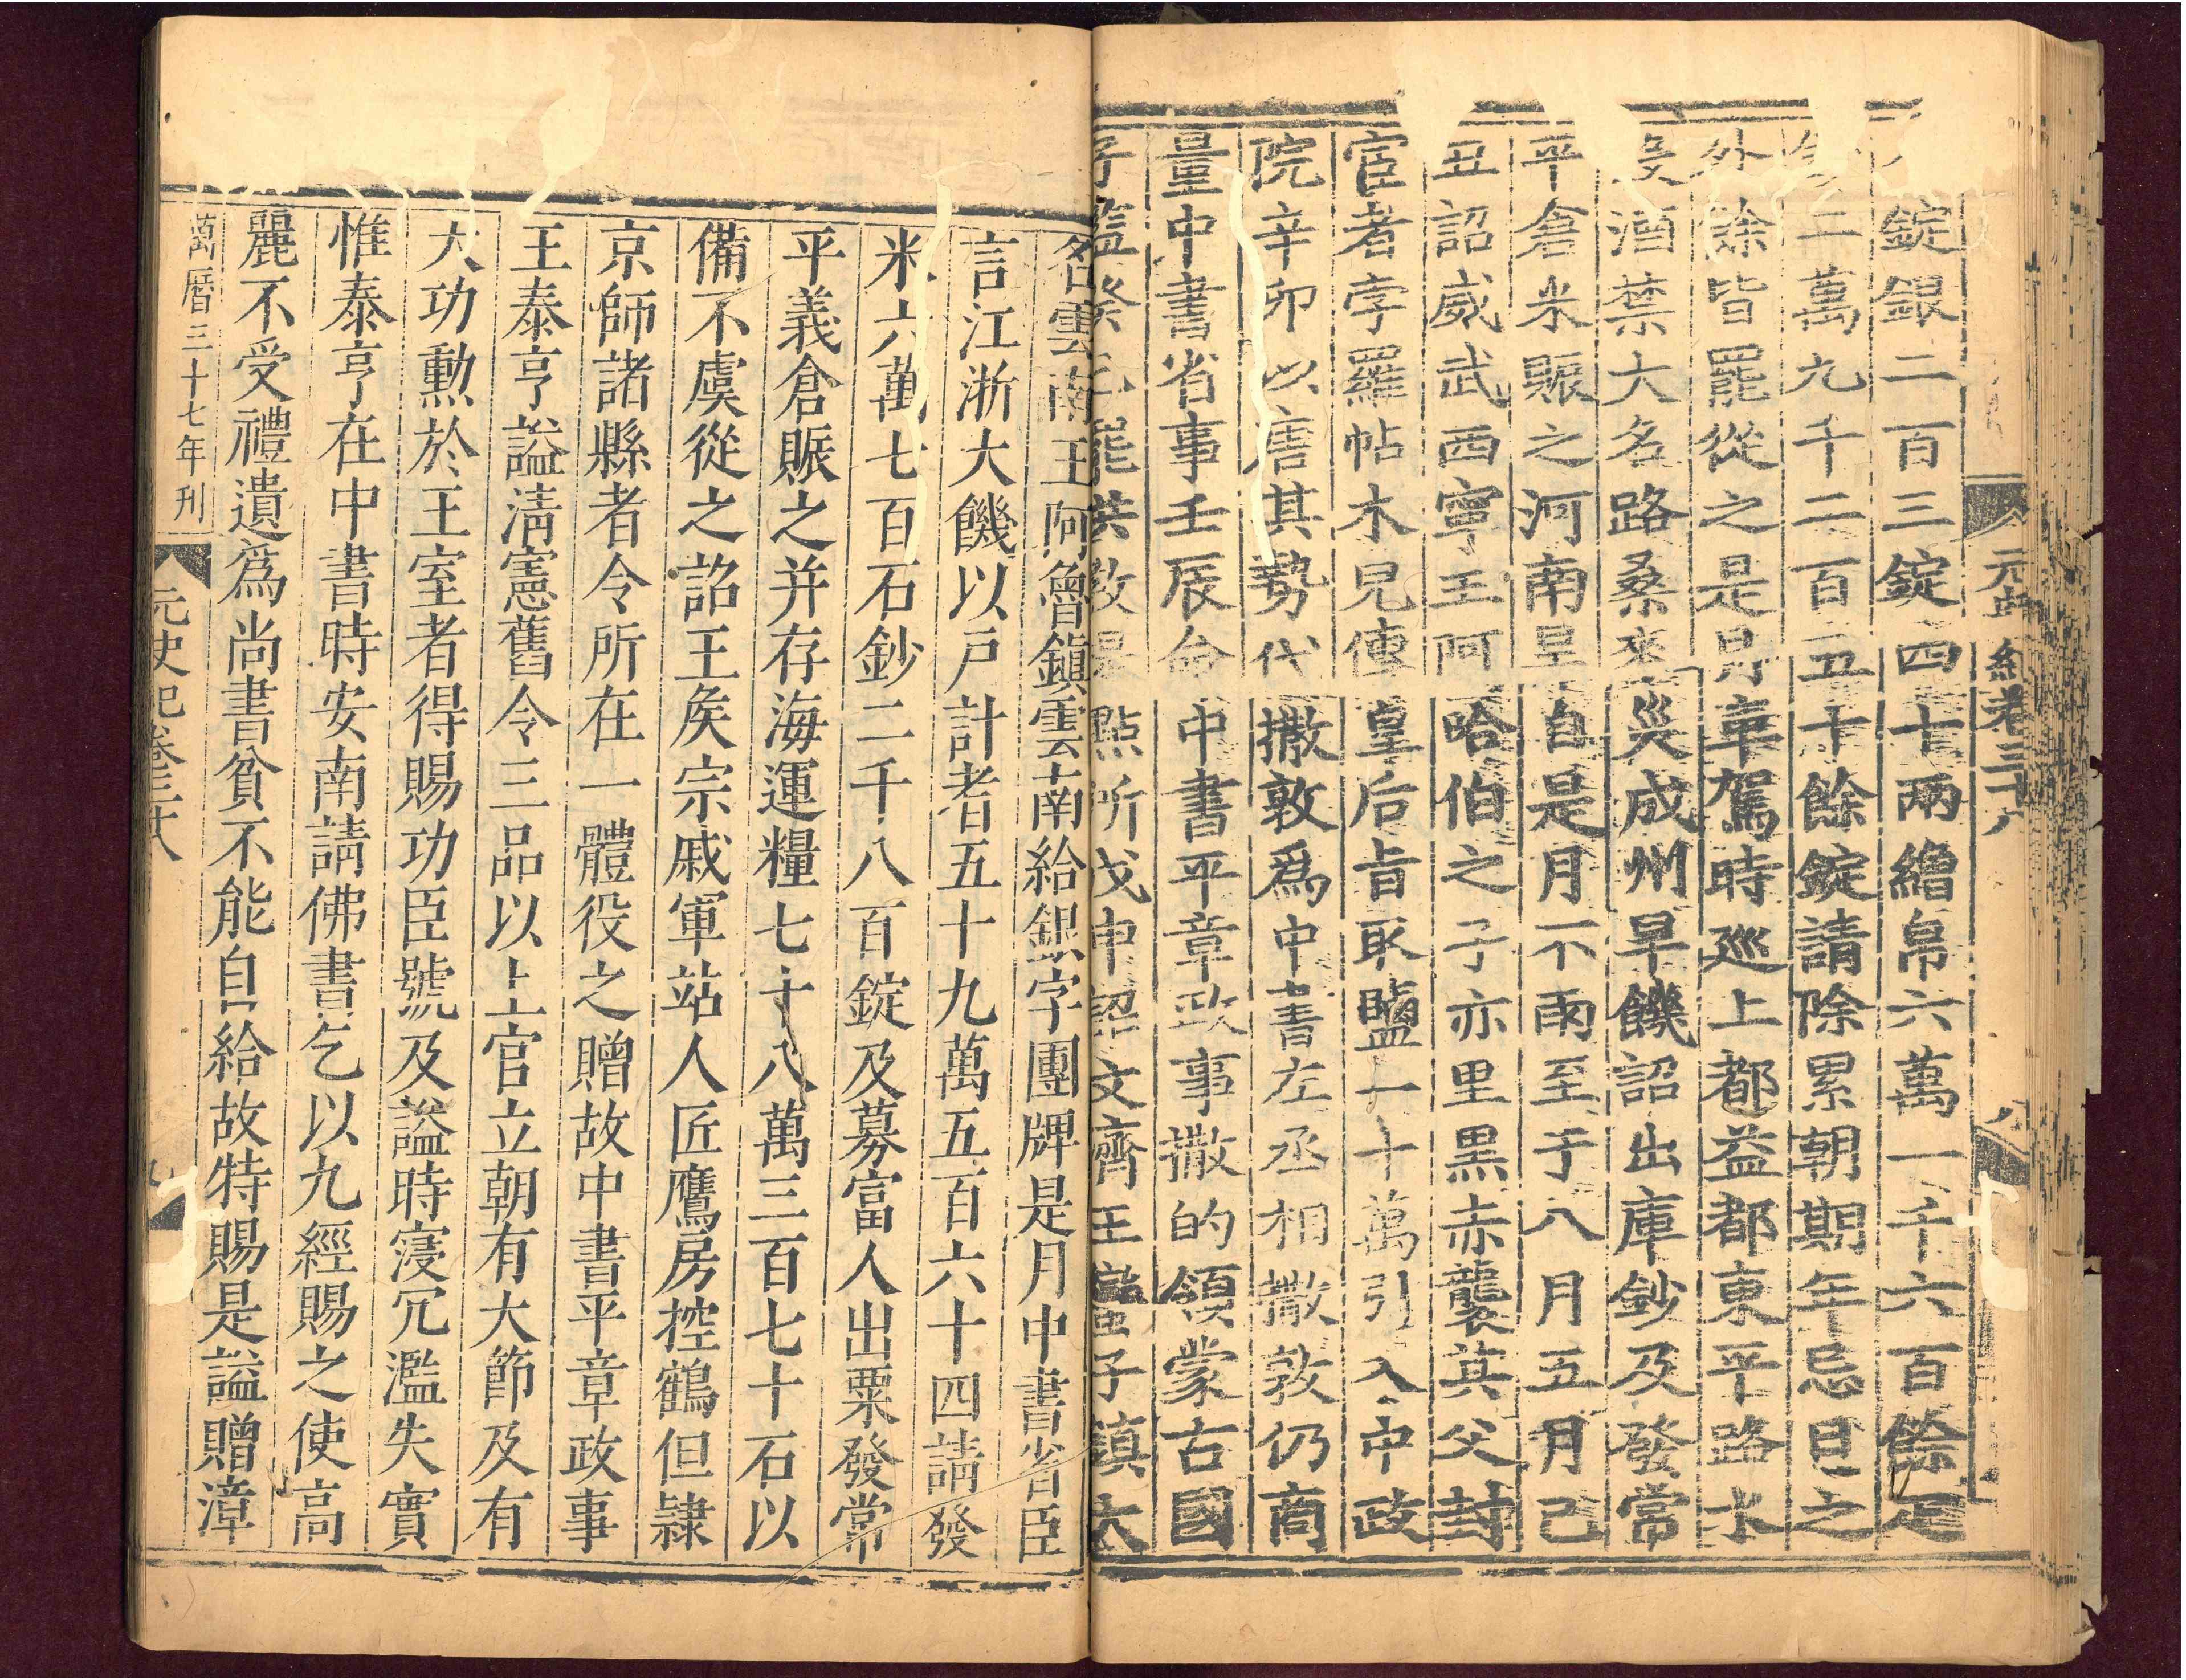 錠銀二百三錠四十兩繒帛六萬一千六百餘疋
二萬九千二百五十餘錠請除累朝期年忌日之
外餘皆罷從之是月車駕時巡上都益都東平路水
設酒禁大名路桑麥災成州旱饑詔出庫鈔及發常
平倉米賑之河南呈自是月不雨至于八月五月己
丑詔威武西寧王阿哈伯之子亦里黑赤襲其父封
宦者孛羅帖木兒傳皇后旨取鹽一十萬引入中政
院辛卯以唐其勢代撒敦爲中書左丞相撒敦仍商
量中書省事壬辰命中書平章政事撒的領蒙古國
子監癸元罷洪教是黙所戊申詔文濟王蠻子鎮大
名雲南王阿魯鎮雲南給銀字團牌是月中書省臣
言江浙大饑以戸計者五十九萬五百六十四請發
米六萬七百石鈔二千八百錠及募富人出粟發常
平義倉賑之并存海運糧七十八萬三百七十石以
備不虞從之詔王矦宗戚軍站人匠鷹房控鶴但隷
京師諸縣者令所在一體役之贈故中書平章政事
王泰亨謚清憲舊令三品以上官立朝有大節及有
大功勲於王室者得賜功臣號及謚時寖冗濫失實
惟泰亨在中書時安南請佛書乞以九經賜之使高
麗不受禮遺爲尚書貧不能自給故特賜是謚贈漳
萬曆三十七年刊
元史紀卷三十八
九
元史紀卷三十八
八